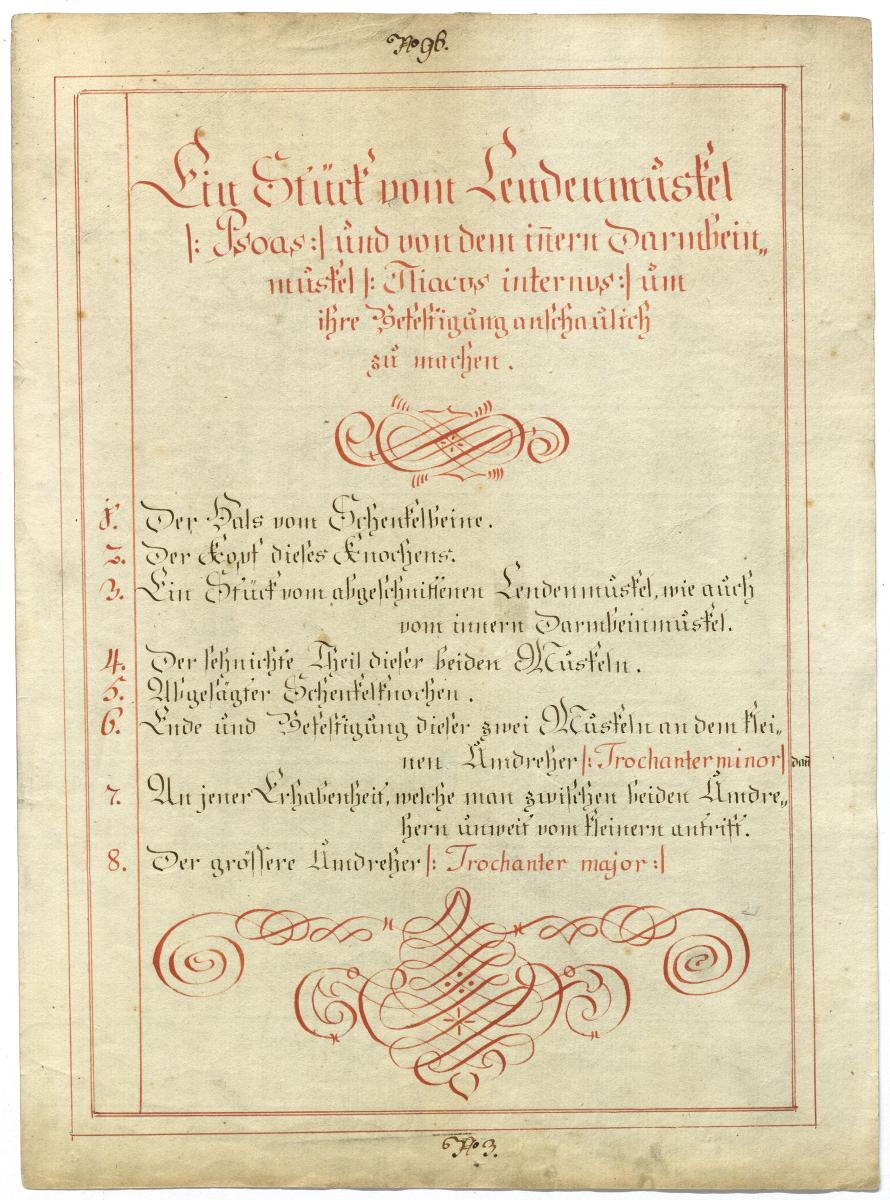 No 96.
Ein Stück vom Lendenmuskel
|: Psoas :| und von dem iñern Darmbein„
muskel |: Iliacus internus :| um
ihre Befestigung anschaulich
zu machen.
1. Der Hals vom Schenkelbeine.
2. Der Kopf dieses Knochens.
3. Ein Stück vom abgeschnittenen Lendenmuskel, wie auch
vom innern Darmbeinmuskel.
4. Der sehnichte Theil dieser beiden Muskeln.
5. Abgesägter Schenkelknochen.
6. Ende und Befestigung dieser zwei Muskeln an dem klei„
nen Umdreher |: Trochanter minor| dañ
7. An jener Erhabenheit, welche man zwischen beiden Umdre„
hern unweit vom kleinern antrifft.
8. Der grössere Umdreher |: Trochanter major :|
No 3.